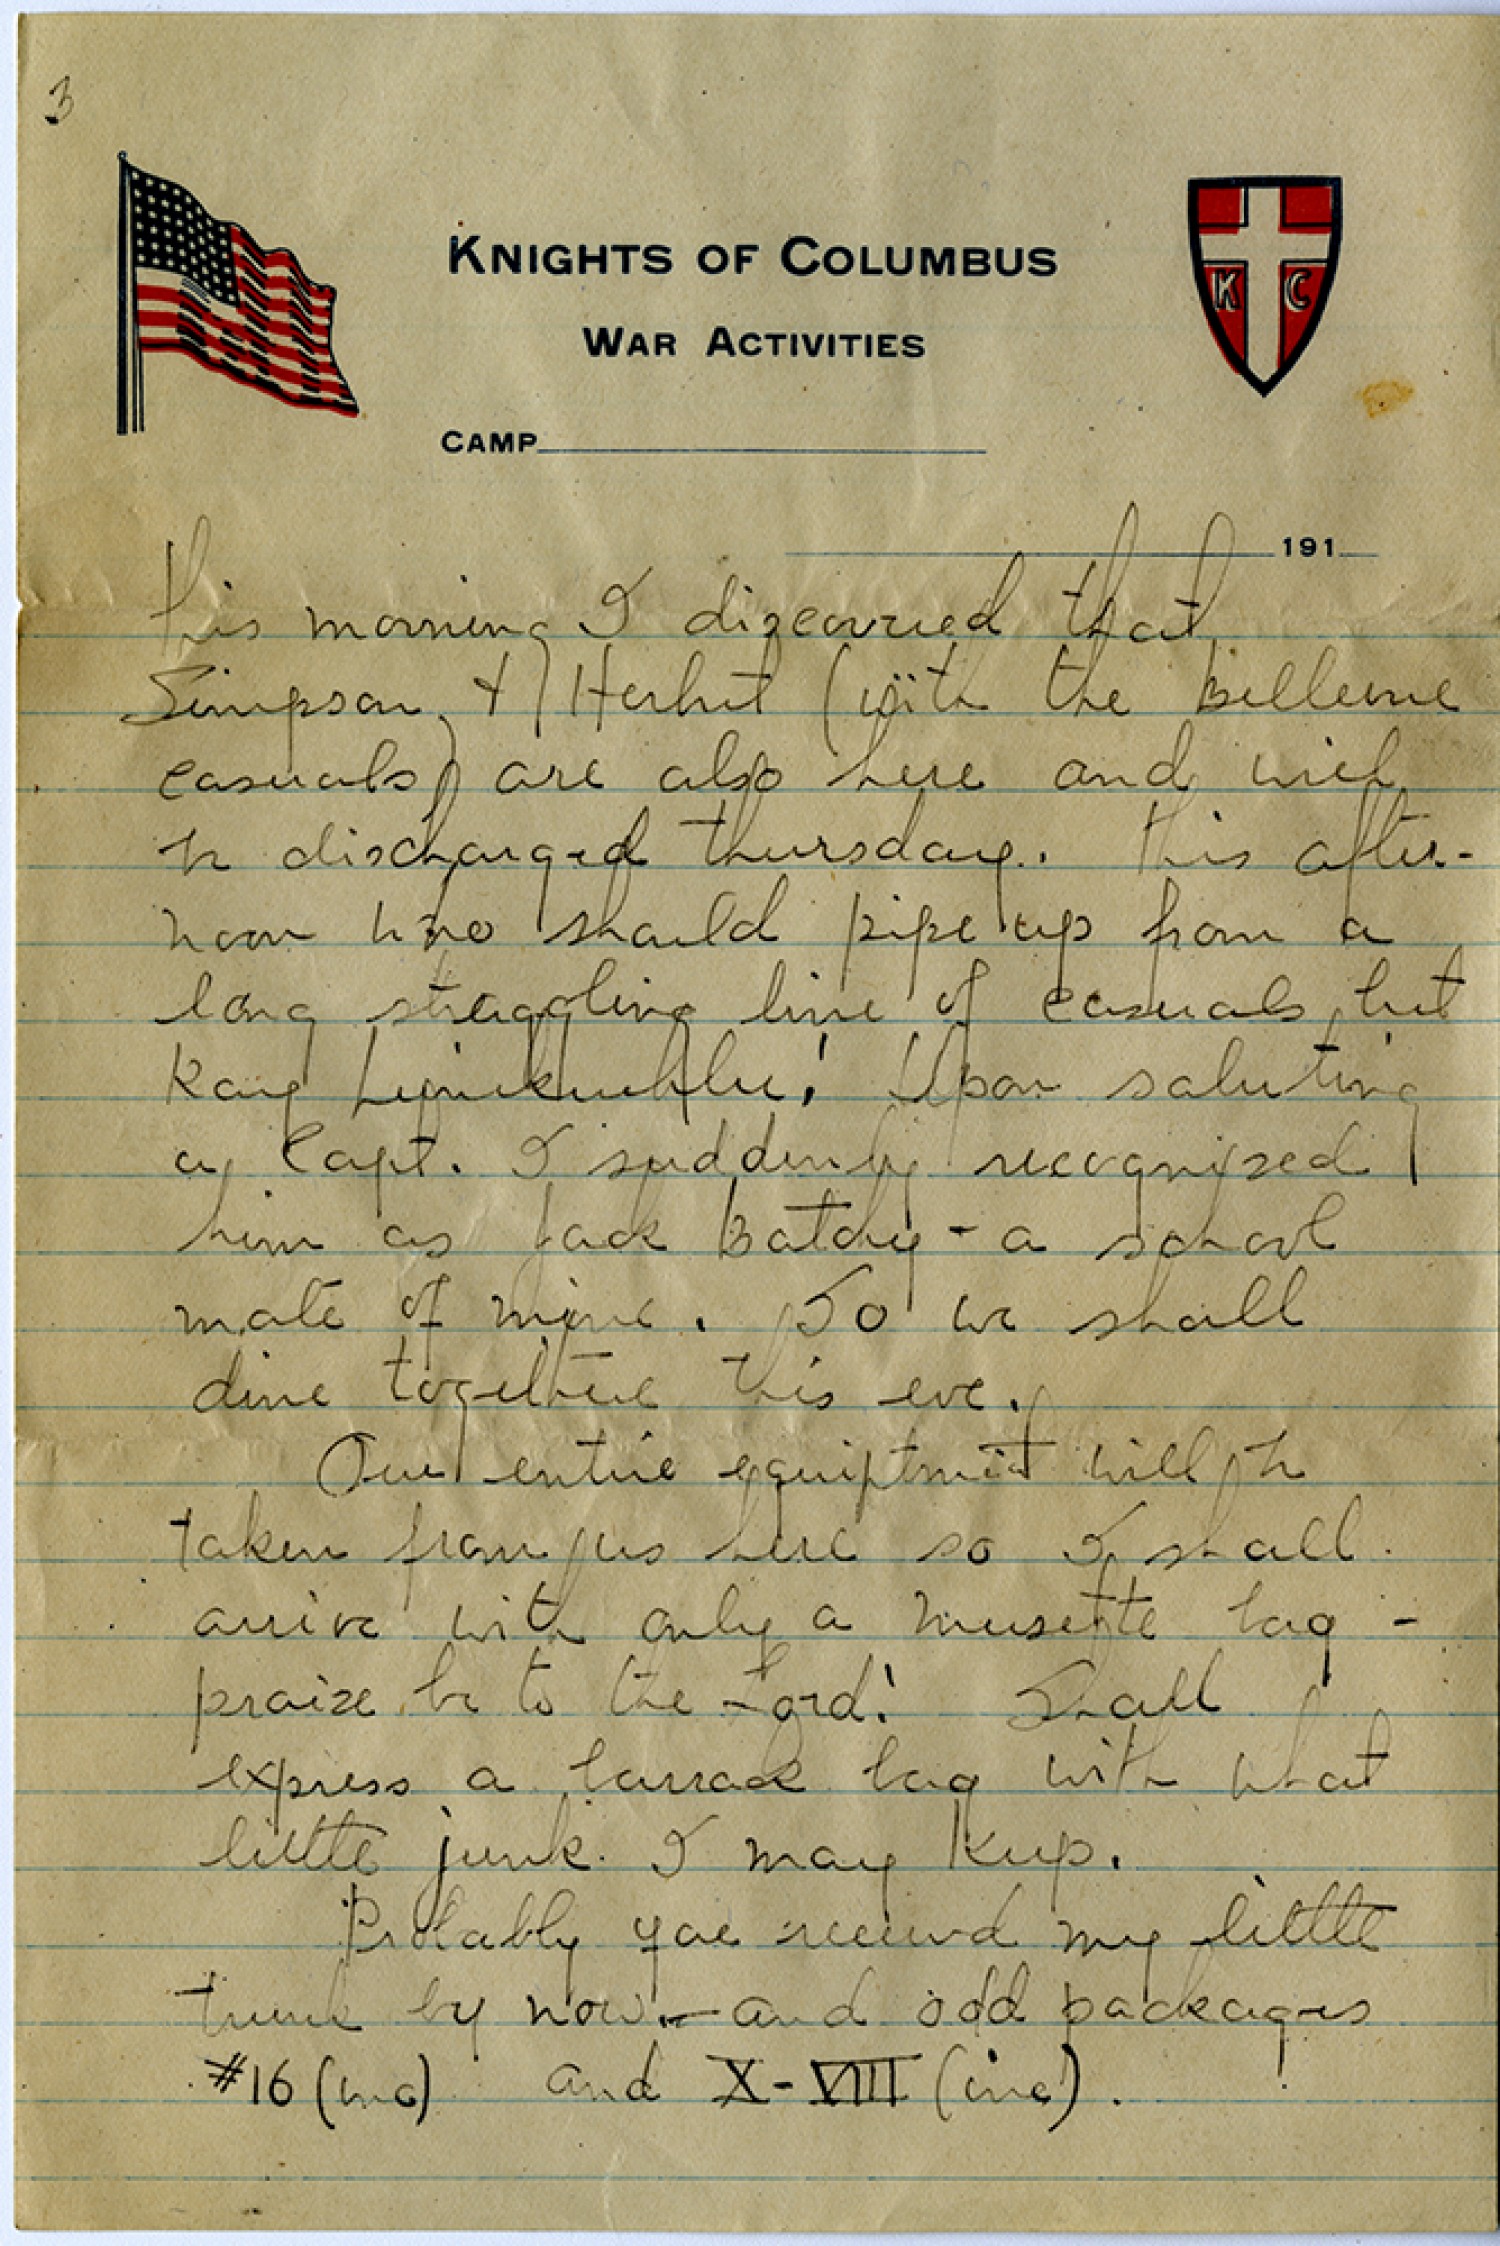 3
KNIGHTS OF COLUMBUS
WAR ACTIVITIES
K C
CAMP
191
this morning I discovered that
Simpson & Herbert (with the Bellevue
casuals) are also here and will
be discharged Thursday. This after-
noon who should pipe up from a
long straggling line of casuals but
Kay! Upon saluting
a Capt. I suddenly recognized
him as Jack - a school
mate of mine. So we shall
dine together this eve.
Our entire equiptment will be
taken from us here so I shall
arrive with only a musette bag -
praise be to the Lord! Shall
express a barrack bag with what
little junk I may keep.
Probably you received my little
trunk by now - and odd packages
#16 (inc) and X-VIII (inc).